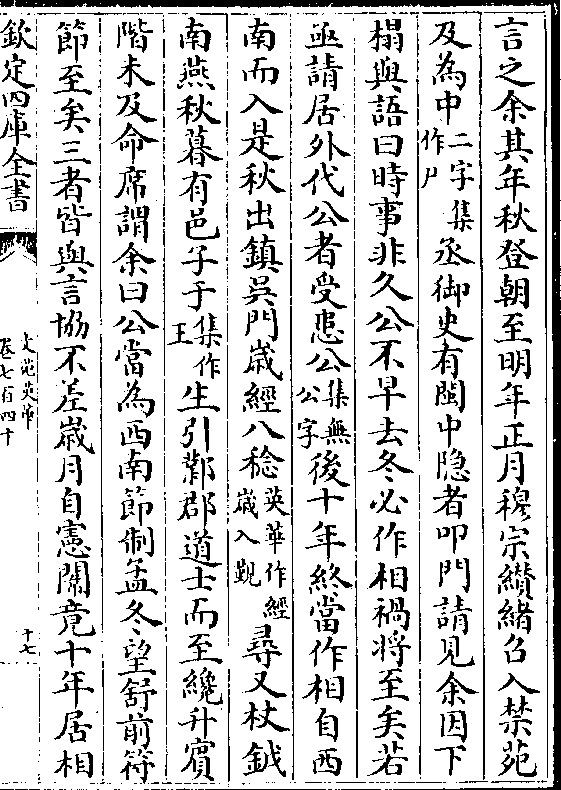 言之余其年秋登朝至明年正月穆宗纉緒召入禁苑
及為中二字集作尸丞御史有閩中隐者叩門請見余因下
榻與語曰時事非久公不早去冬必作相禍将至矣若
亟請居外代公者受患公集無公字後十年終當作相自西
南而入是秋出鎮吳門嵗經八稔英華作經嵗入覲尋又杖鉞
南燕秋暮有邑子于集作王生引鄴郡道士而至纔升賓
階未及命席謂余曰公當為西南節制孟冬望舒前符
節至矣三者皆與言協不差嵗月自憲闈竟十年居相
欽定四庫全書
文苑英華
卷七百四十
十七